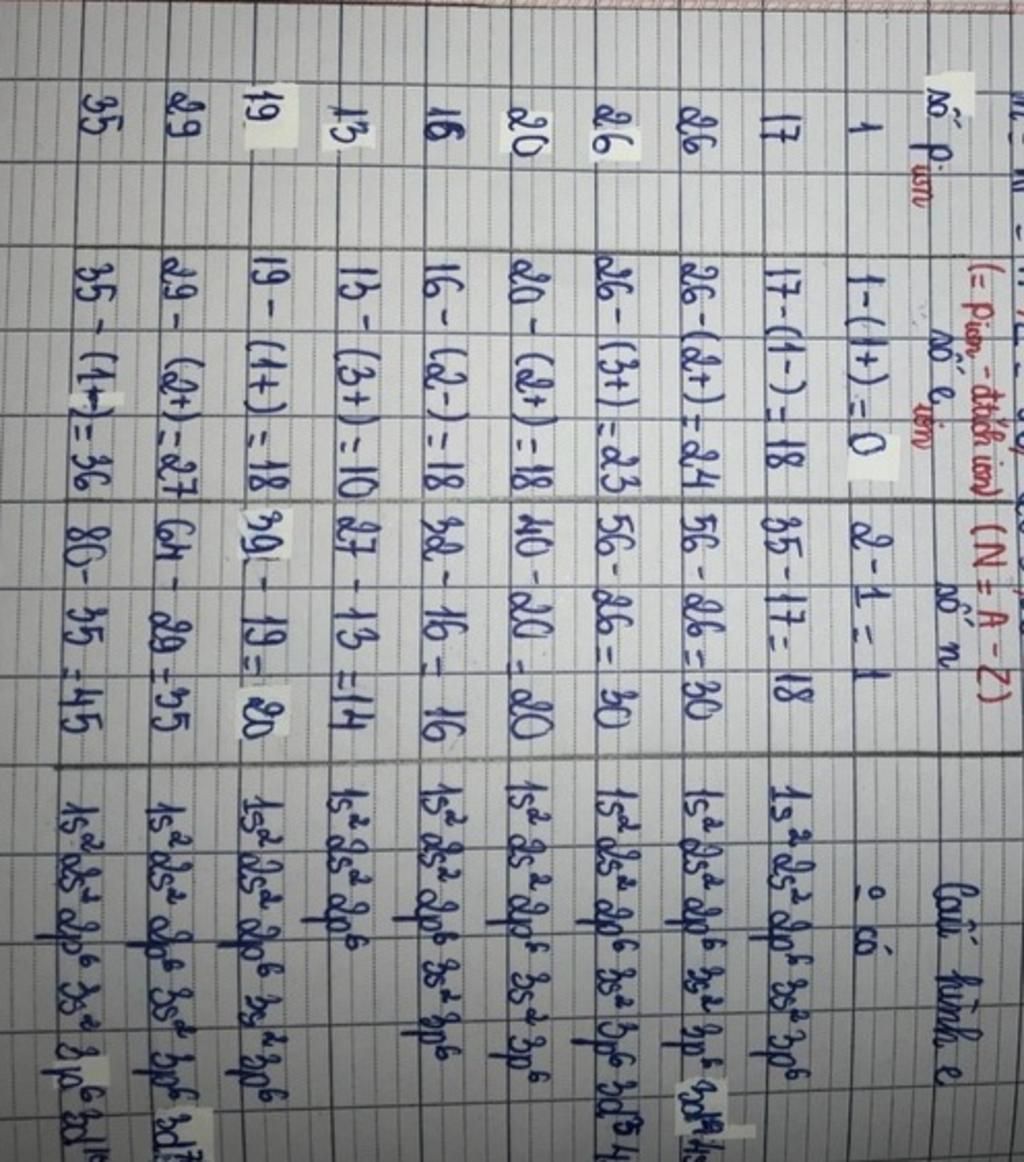 (= pion - đtích ion) (N = A - Z)
số pion số eion số n Cấu hình e
1 1-(1+) = 0 2 - 1 = 1 0 có
17 17-(1-) = 18 35 - 17 = 18 1s² 2s² 2p⁶ 3s² 3p⁶
26 26-(2+) = 24 56 - 26 = 30 1s² 2s² 2p⁶ 3s² 3p⁶
26 26 - (3+) = 23 56 - 26 = 30 1s² 2s² 2p⁶ 3s² 3p⁶ 3d
20 20 - (2+) = 18 40 - 20 = 20 1s² 2s² 2p⁶ 3s² 3p⁶
16 16 - (2-) = 18 32 - 16 = 16 1s² 2s² 2p⁶ 3s² 3p⁶
13 13 - (3+) = 10 27 - 13 = 14 1s² 2s² 2p⁶
19 19 - (1+) = 18 39 - 19 = 20 1s² 2s² 2p⁶ 3s² 3p⁶
29 29 - (2+) = 27 64 - 29 = 35 1s² 2s² 2p⁶ 3s² 3p⁶ 3d⁷
35 35 - (1-) = 36 80 - 35 = 45 1s² 2s² 2p⁶ 3s² 3p⁶ 3d¹⁰